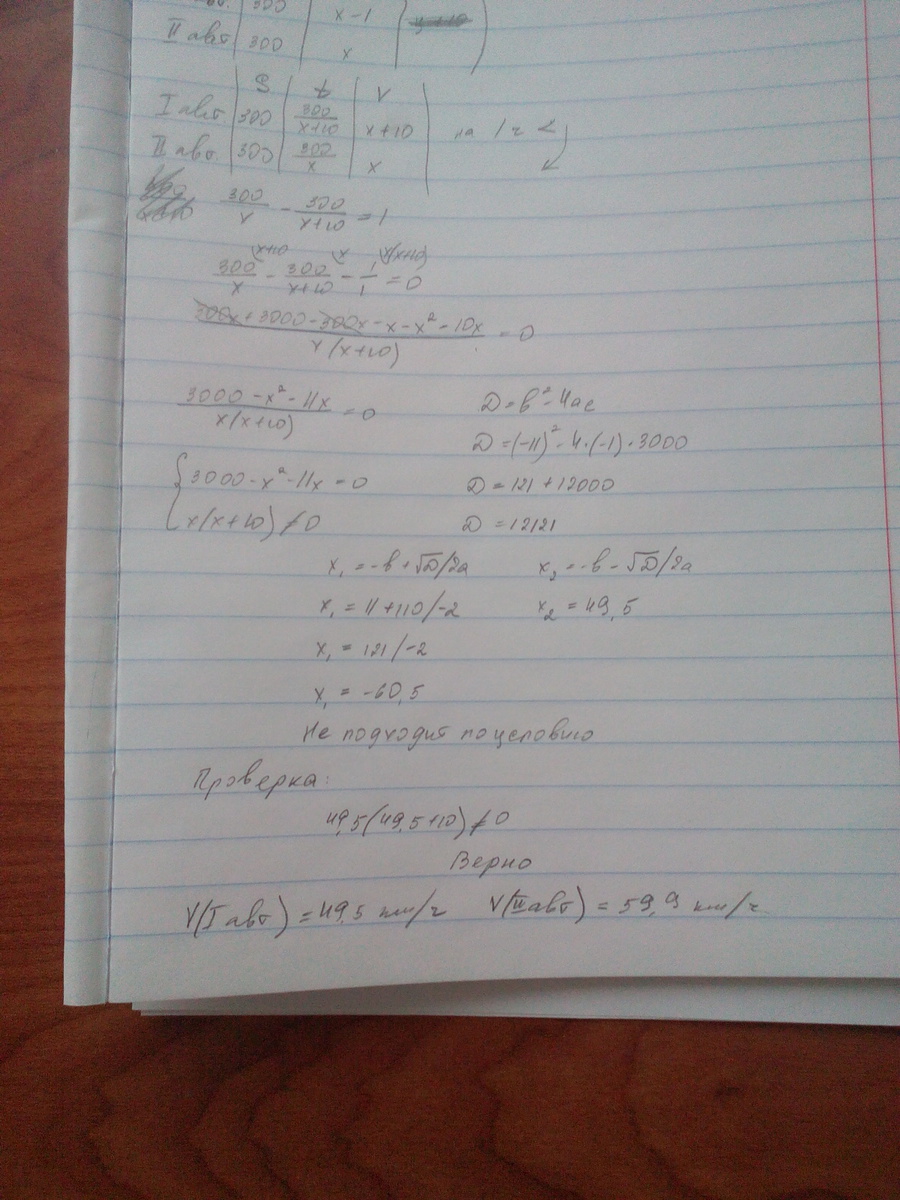 300 | x-1 |
II авт. | 300 | x
S | t | V
I авт | 300 | 300/(x+10) | x+10 на 1 ч <
II авт. | 300 | 300/x | x
300/x - 300/(x+10) = 1
300/x - 300/(x+10) - 1/1 = 0
(300x + 3000 - 300x - x - x² - 10x)/(x(x+10)) = 0
(3000 - x² - 11x)/(x(x+10)) = 0
{3000 - x² - 11x = 0
x(x+10) ≠ 0
D = b² - 4ac
D = (-11)² - 4·(-1)·3000
D = 121 + 12000
D = 12121
x₁ = -b + √D/2a x₂ = -b - √D/2a
x₁ = 11 + 110/-2 x₂ = 49,5
x₁ = 121/-2
x₁ = -60,5
Не подходит по условию
Проверка:
49,5(49,5+10) ≠ 0
Верно
V(I авт) = 49,5 км/ч V(II авт) = 59,9 км/ч